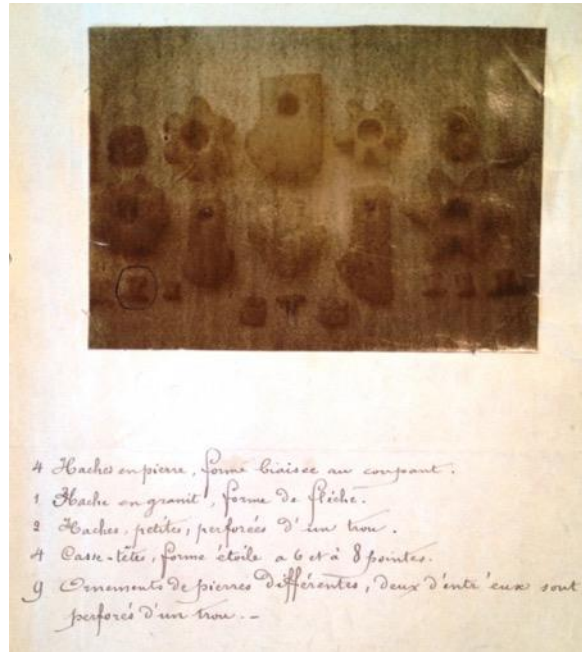 4 Haches en pierre, forme biaisée au coupant.
1 Hache en granit, forme de flèche.
2 Haches, petites, perforées d'un trou.
4 Casse-têtes, forme étoile a 6 et à 8 pointes.
9 Ornements de pierres différentes, deux d'entr'eux sont
perforés d'un trou. -